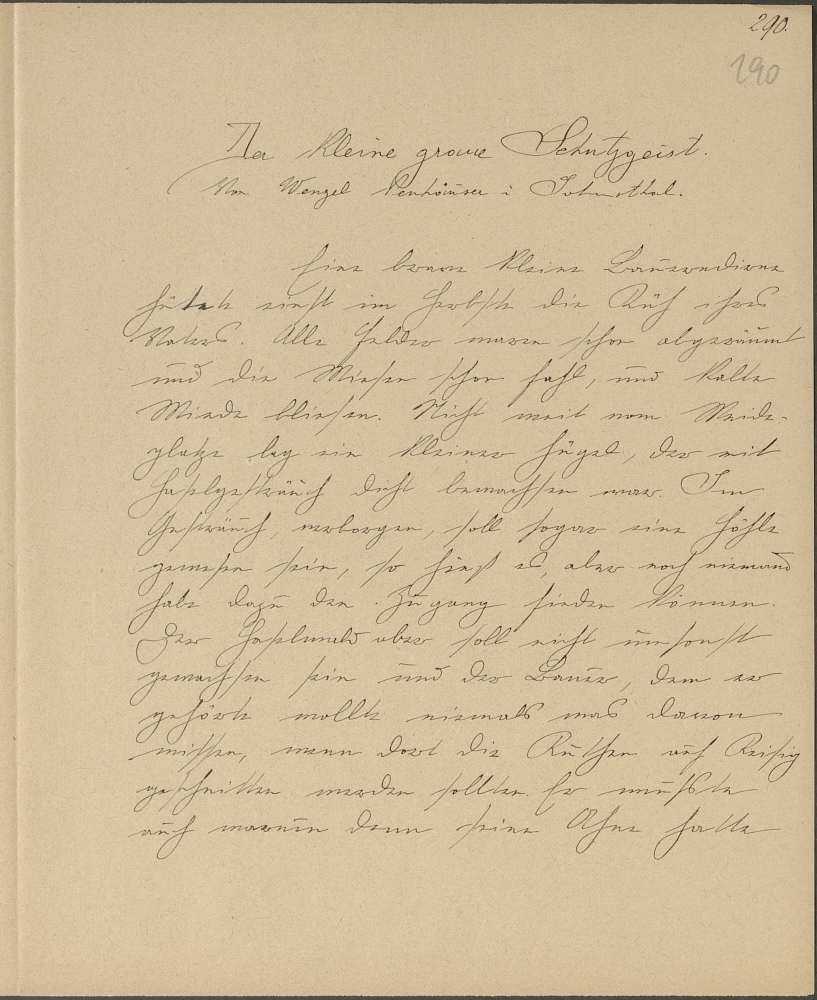 290.
190
Der kleine graue Schutzgeist.
Von Wenzel Peuhäuser i
Eine brave kleine Bauerndirne
hütete einst im Herbste die Küh ihres
Vaters. Alle Felder waren schon abgeräumt
und die Wiesen schon fahl, und kalte
Winde bliesen. Nicht weit vom Weide-
platze lag ein kleiner Hügel, der mit
Haselgesträuch dicht bewachsen war. Im
Gesträuch, verborgen, soll sogar eine Höhle
gewesen sein, so hieß es, aber noch niemand
habe dazu den Zugang finden können.
Der Haselwald aber soll nicht umsonst
gewachsen sein und der Bauer, dem er
gehörte wollte niemals was davon
wissen, wenn dort die Ruthen auf Reisig
geschnitten werden sollten. Er wußste
auch warum denn seine Ahne hatte